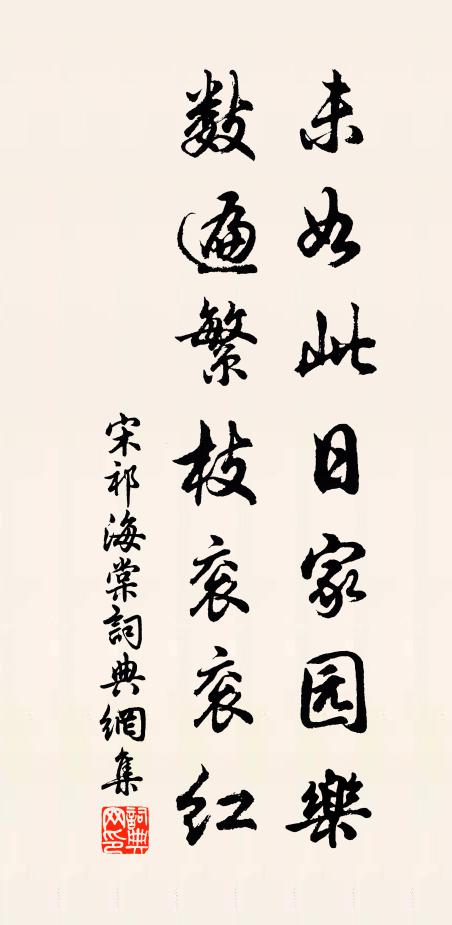 未如此日家园樂
数遍繁枝衮衮红
宋祁海棠詞典網集
詞典
网印